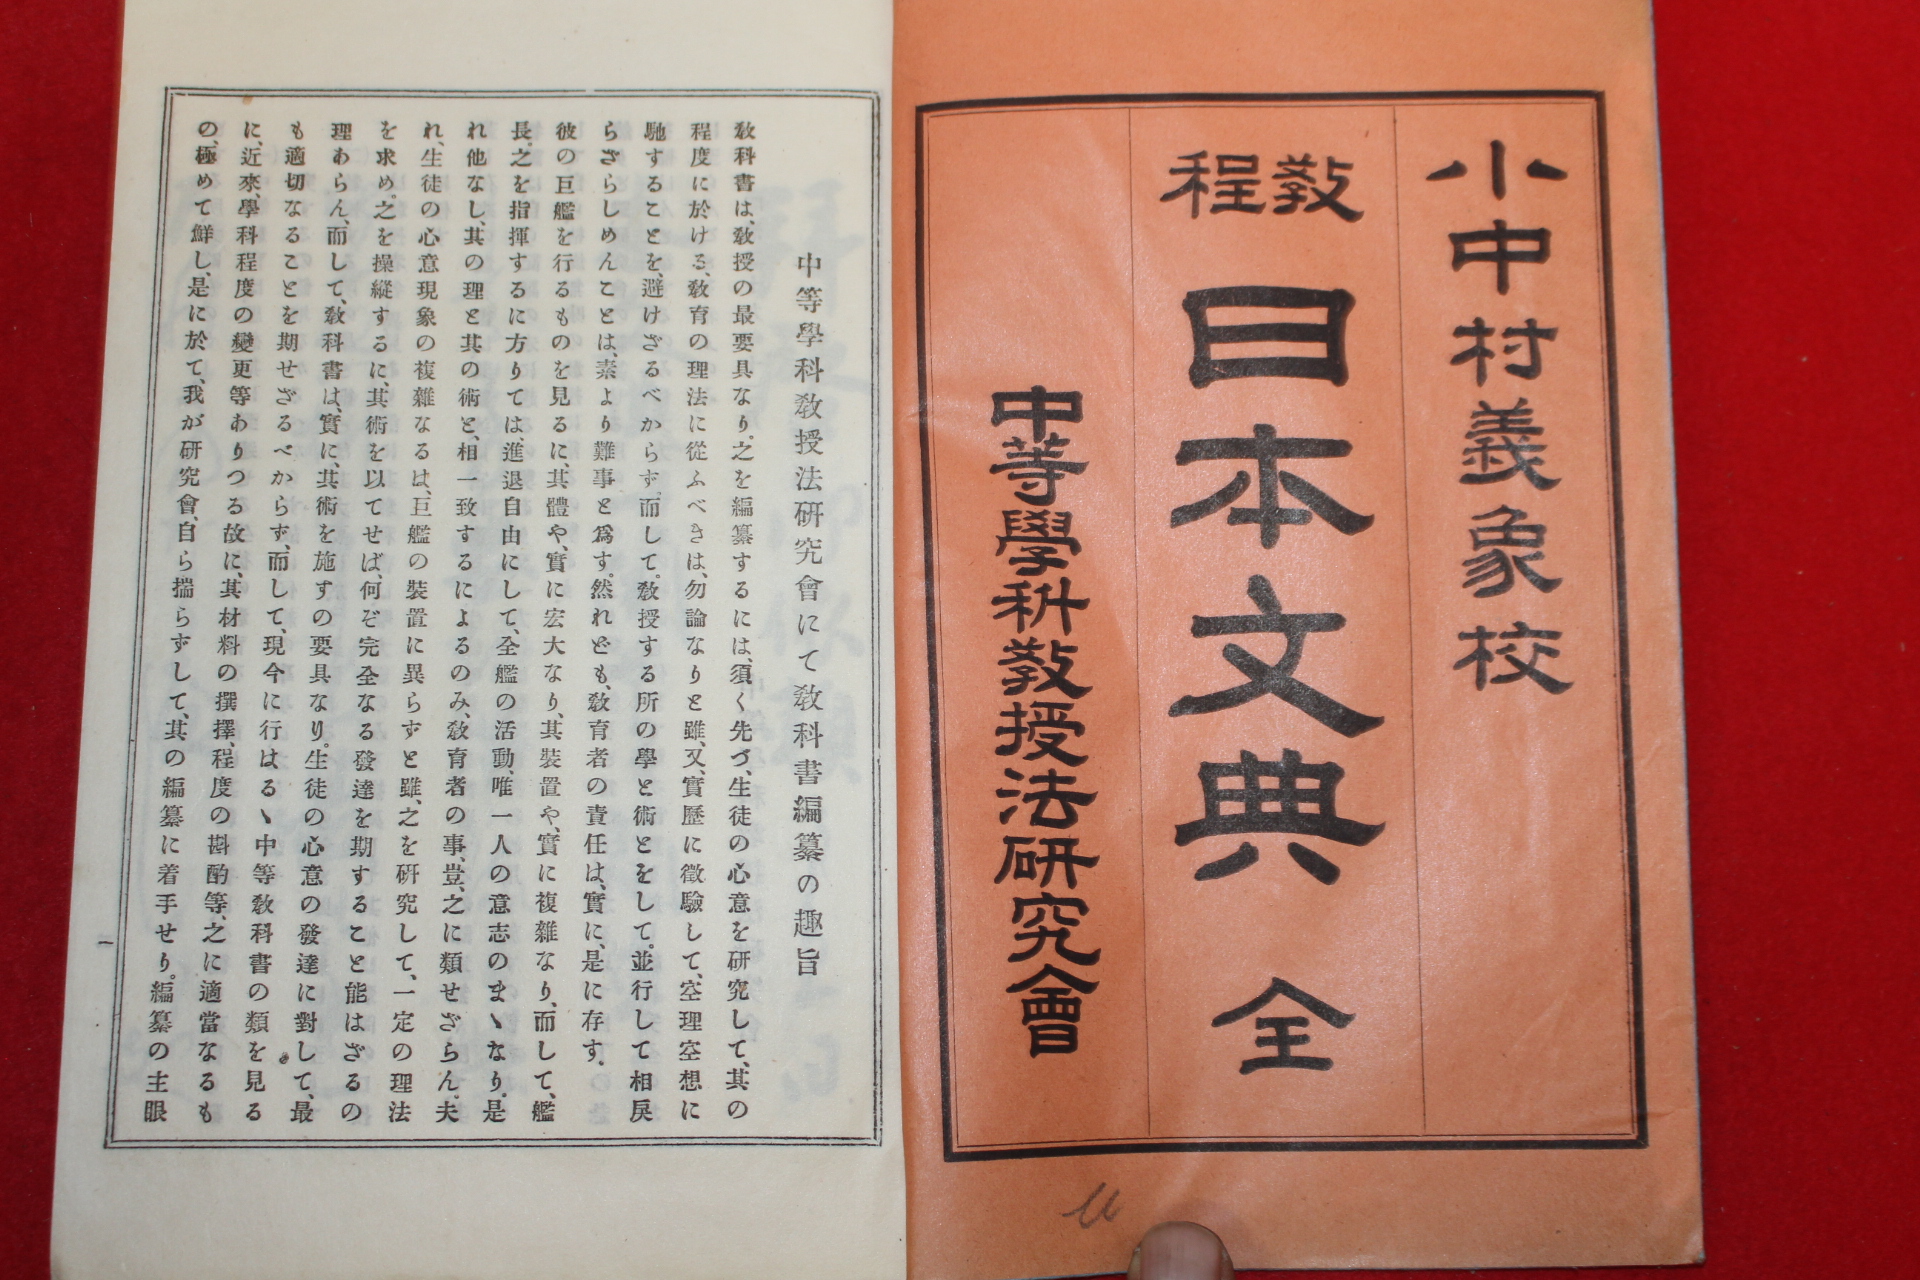 小中村義象校
教程
日本文典 全
中等學科教授法研究會
中等學科教授法研究會にて教科書編纂の趣旨
教科書は、教授の最要具なり。之を編纂するには、須く先づ、生徒の心意を研究して、其の
程度に於ける、教育の理法に從ふべきは、勿論なりと雖、又、實歷に徵驗して、空理空想に
馳することを、避けざるべからず、而して。教授する所の學と術とをして。並行して相戾
らざらしめんことは、素より難事と爲す。然れども、教育者の責任は、實に、是に存す。
彼の巨艦を行るものを見るに、其體や、實に宏大なり、其裝置や、實に複雜なり、而して、艦
長、之を指揮するに方りては、進退自由にして、全艦の活動、唯一人の意志のまゝなり。是
れ他なし、其の理と其の術と、相一致するによるのみ、教育者の事、豈、之に類せざらん。夫
れ、生徒の心意現象の複雜なるは、巨艦の裝置に異らずと雖、之を硏究して、一定の理法
を求め。之を操縱するに、其術を以てせば、何ぞ完全なる發達を期すること能はざるの
理あらん、而して、教科書は、實に、其術を施すの要具なり。生徒の心意の發達に對して、最
も適切なることを期せざるべからず、而して、現今に行はるゝ中等教科書の類を見る
に、近來、學科程度の變更等ありつる故に、其材料の撰擇、程度の斟酌等、之に適當なるも
の、極めて鮮し、是に於て、我が研究會、自ら揣らずして、其の編纂に着手せり。編纂の主眼
一